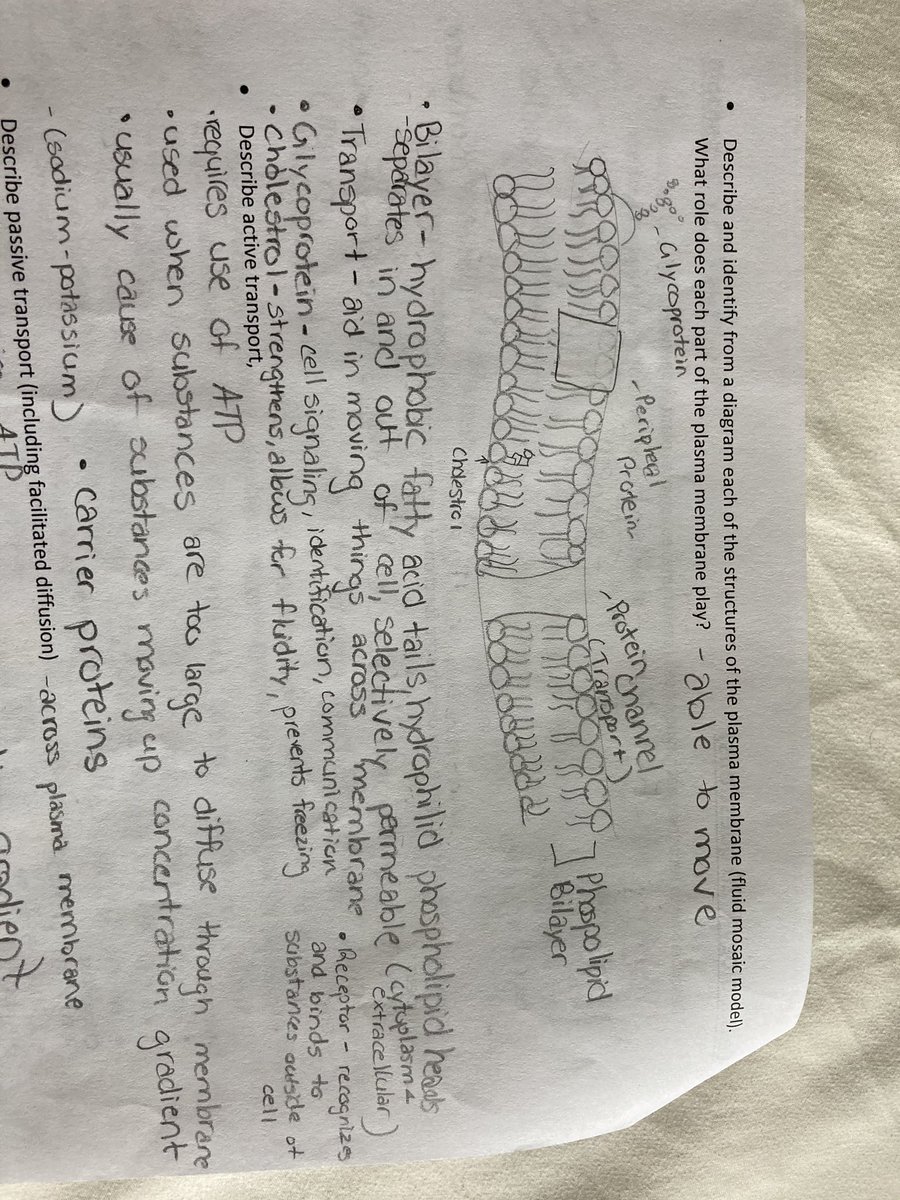 • Describe and identify from a diagram each of the structures of the plasma membrane (fluid mosaic model).
What role does each part of the plasma membrane play? - able to move
- Glycoprotein
- Peripheral
Protein
- Protein Channel
(Transport)
Phospolipid
Bilayer
Cholestrol
• Bilayer - hydrophobic fatty acid tails, hydrophilid phospholipid heads
- seprates in and out of cell, selectively permeable (cytoplasm &
extracellular)
• Transport - aid in moving things across membrane
• Receptor - recognizes
and binds to
substances outside of
cell
• Glycoprotein - cell signaling, identification, communication
• Cholestrol - strengthens, allows for fluidity, prevents freezing
• Describe active transport,
• requires use of ATP
• used when substances are too large to diffuse through membrane
• usually cause of substances moving up concentration gradient
- (sodium-potassium) • carrier proteins
• Describe passive transport (including facilitated diffusion) - across plasma membrane
ATP
gradient